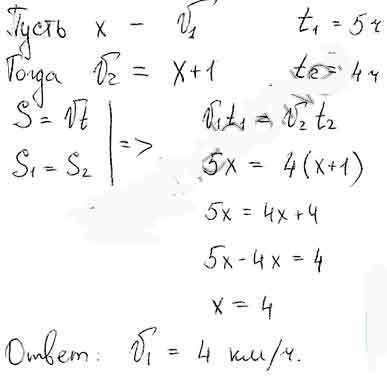 Пусть x - v₁ t₁ = 5 ч
Тогда v₂ = x+1 t₂ = 4 ч
S = vt
S₁ = S₂
=> v₁t₁ = v₂t₂
5x = 4(x+1)
5x = 4x+4
5x-4x = 4
x = 4
Ответ: v₁ = 4 км/ч.